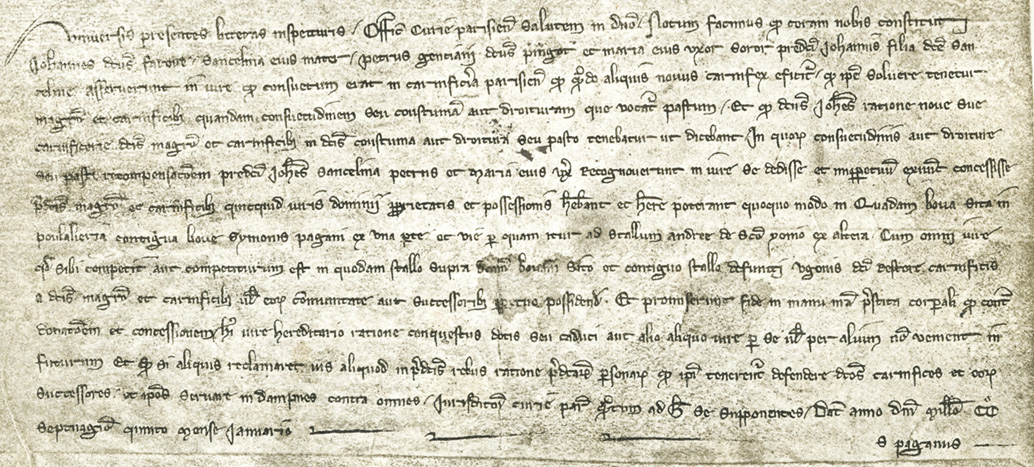 Universis presentes litteras inspecturis / Offic' Curie parisien' salutem in dno' / Notum facimus qd' coram nobis constituti
Johannes dcus' farone / Sancelina eius mater / petrus genciani dcus' pingot et maria eius uxor soror predci' Johannis filia dce' San
celine asseruerunt in iure qd' consuetum erat in carnificeria parisien' qd' qn'do aliquis novus carnifex efficit' / qd' ipe' solvere tenetur
magro' et carnificib; quandam consuetudinem seu coustuma' aut droituram que vocat' pastum / Et qd' dcus' Johes' ratione nove sue
carnificerie dcis' magro' et carnificib; in dca' coustuma aut droitura seu pasto tenebatur ut dicebant / In quor' consuetudinis aut droiture
seu pasti recompensacoem' predci' Johes' Sancelina petrus et Maria eius ux' recognoverunt in iure se dedisse et imppetuu' concessisse
pdcis' magro' et carnificib; quicquid iuris dominii proprietatis et possessionis hebant' et here' poterant quoquo modo in quadam bova sita in
poulalieria contigua bove Symonis pagani ex una pte' et vie p' quam itur ad stallum andree de Sco' yonio ex altera / Cum omni iure
qd' sibi competit aut competiturum est in quodam stallo supra dcam' bovam sito et contiguo stallo defuncti ugonis dci' restore carnificis
a dcis' magro' et carnificib; et eor' communitate aut successorib; ppetuo' possidend' / Et promiserunt fide in manu nra' pstita' corporali qd' cont'
donacoem' et concessionem h' iure hereditario ratione conquestus dotis seu caduci aut alio aliquo iure p' se ul' per alium no' venient in
futurum Et qd' si aliquis reclamaret ius aliquod in pdcis' rebus ratione pdcar' personar' qd' ipi' tenerent' defendere dcos' carnifices et eor'
successores / et ipos' servare indampnes contra omnes / Iurisdictoi' curie par' qntum' ad h' se supponentes / Dat' anno dni' millo' CC°
septuagio' quinto mense Januario
S paganus